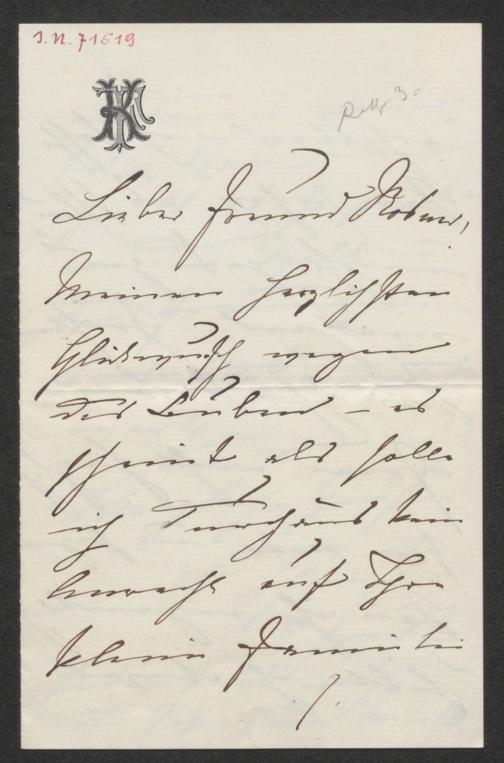 J.N. 71519
Lieber Freund Rosner,
Meinen herzlichsten
Glückwunsch wegen
des Buben – es
scheint als solle
ich durchaus kein
auf Ihre
kleine Familie